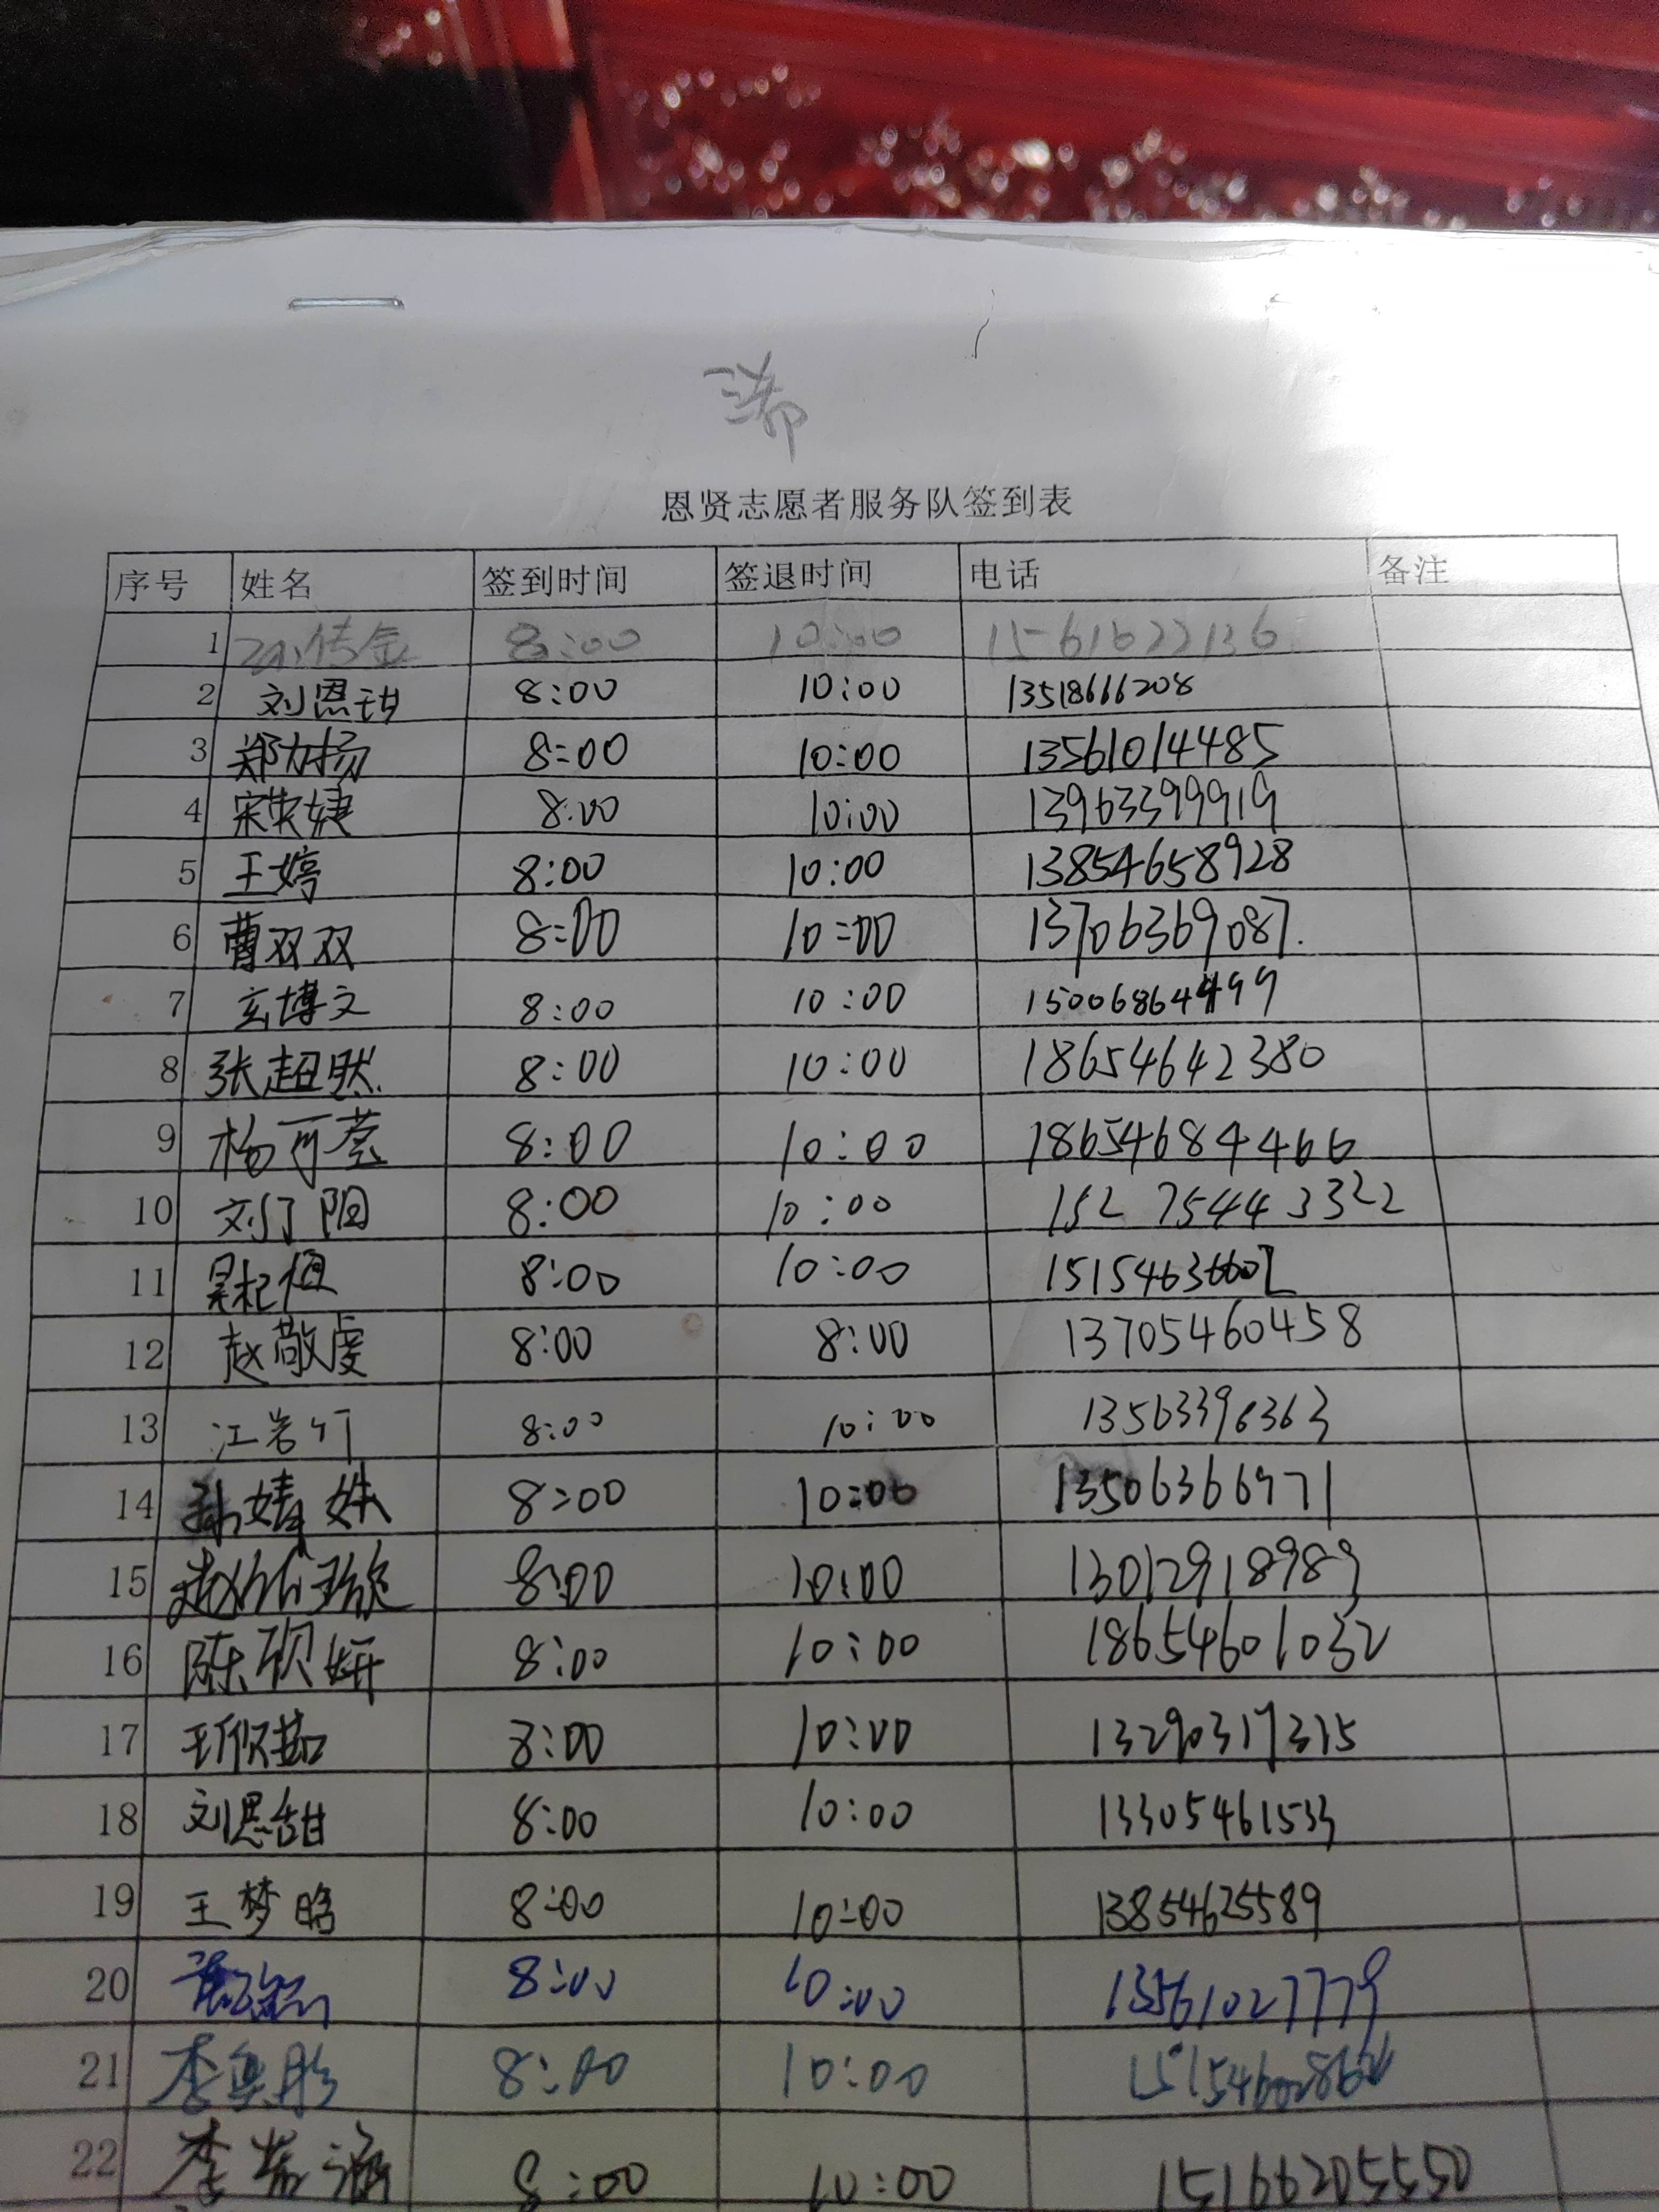 恩贤志愿者服务队签到表
序号 姓名 签到时间 签退时间 电话 备注
1 8:00 10:00 1561622136
2 刘恩甜 8:00 10:00 13518616208
3 郑力扬 8:00 10:00 13561014485
4 8:00 10:00 13963399919
5 王婷 8:00 10:00 13854658928
6 曹双双 8:00 10:00 13706369087.
7 玄博文 8:00 10:00 15006864499
8 张超然 8:00 10:00 18654642380
9 8:00 10:00 18654684466
10 8:00 10:00 152 75443322
11 8:00 10:00
12 赵敬虔 8:00 8:00 13705460458
13 8:00 10:00 13563396363
14 孙婧姝 8:00 10:00 13506366971
15 8:00 10:00 13012918989
16 陈砚妍 8:00 10:00 18654601032
17 8:00 10:00 13290317315
18 刘恩甜 8:00 10:00 13305461533
19 王梦晗 8:00 10:00 13854625589
20 8:00 10:00 13561027779
21 8:00 10:00
22 8:00 10:00 15166205550